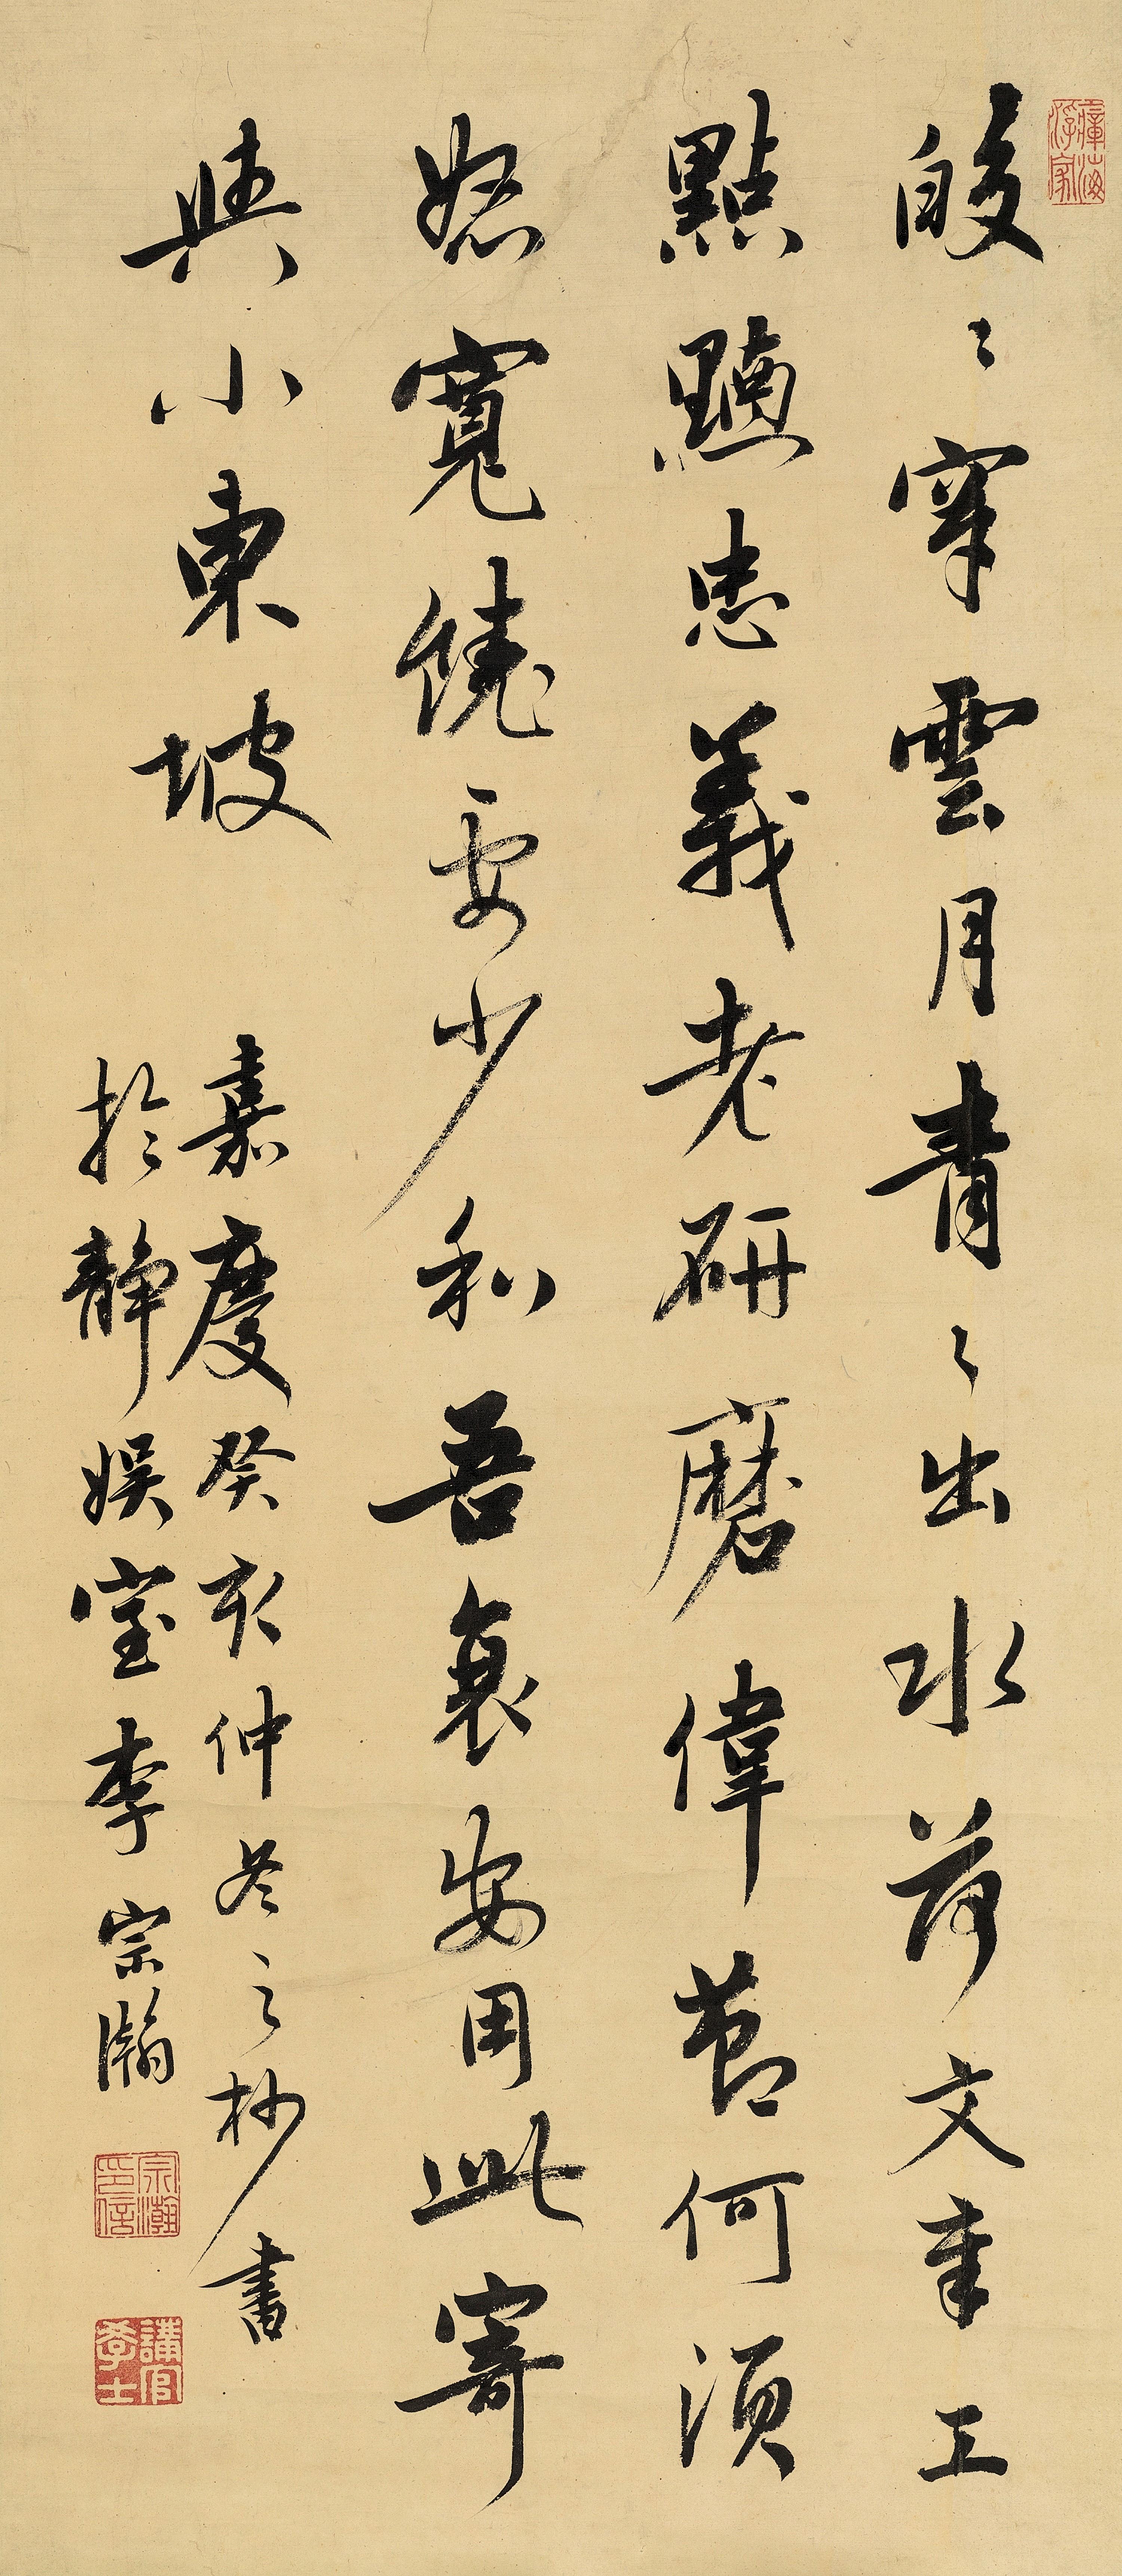 瘴海浮家
皎〻穿雲月青〻出水荷文章工
點黵忠義老研磨偉節何須
怒寬饒要少和吾衰安用此寄
與小東坡
嘉慶癸亥仲冬之杪書
於靜娛室李宗瀚
宗瀚印信
講官學士